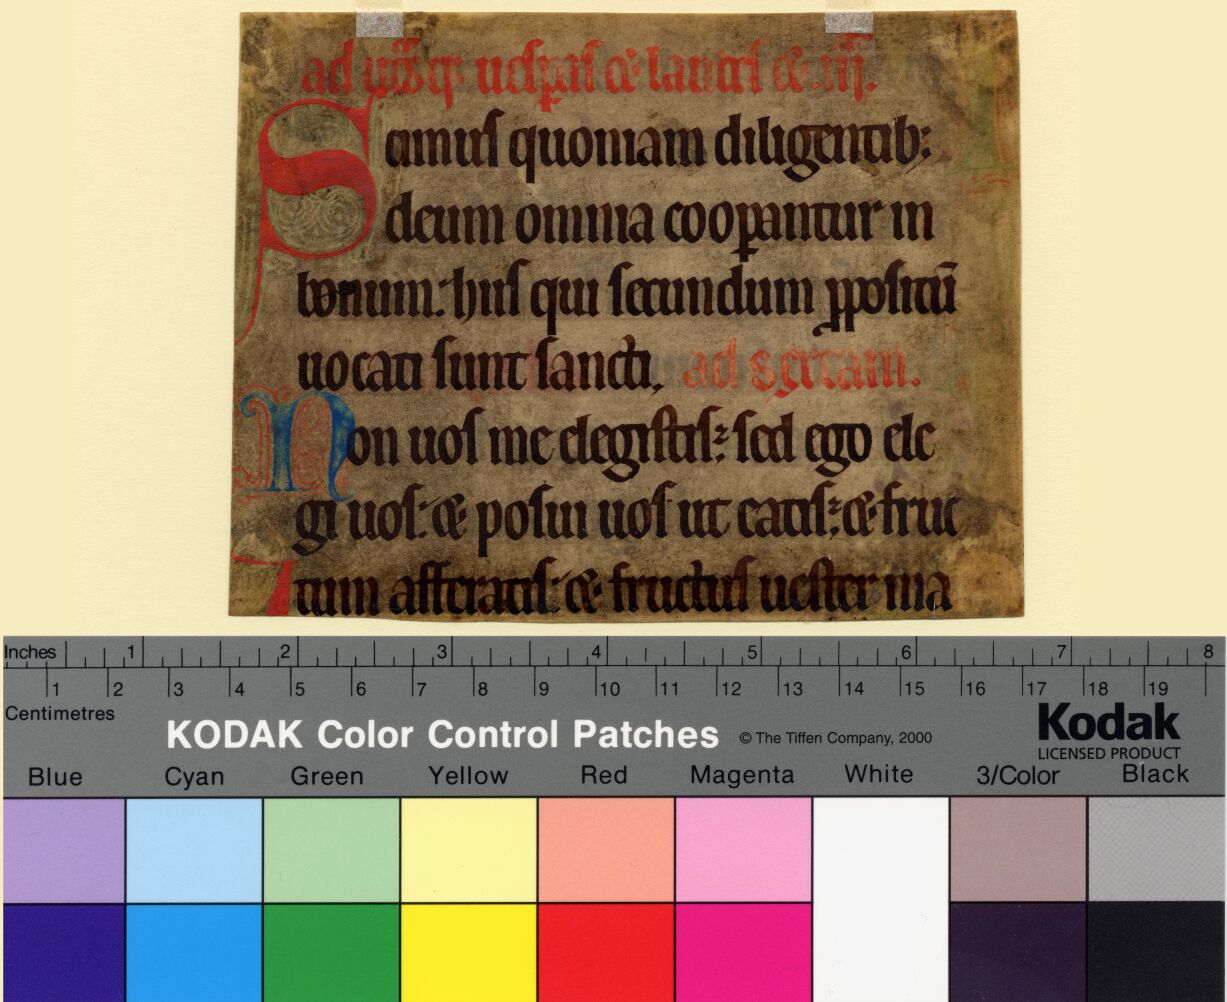 ad ut̃sq; uesꝑas & laudes & .iij.
Scimus quoniam diligentib;
deum omnia cooꝑantur in
bonum. hiis qui secundum ꝓpositū
uocati sunt sancti. ad sextam.
Non uos me elegistis: sed ego ele
gi uos: & posui uos ut eatis: & fruc
tum afferatis: & fructus uester ma
Inches 1 2 3 4 5 6 7 8
1 2 3 4 5 6 7 8 9 10 11 12 13 14 15 16 17 18 19
Centimetres
KODAK Color Control Patches © The Tiffen Company, 2000
Kodak
LICENSED PRODUCT
Blue Cyan Green Yellow Red Magenta White 3/Color Black